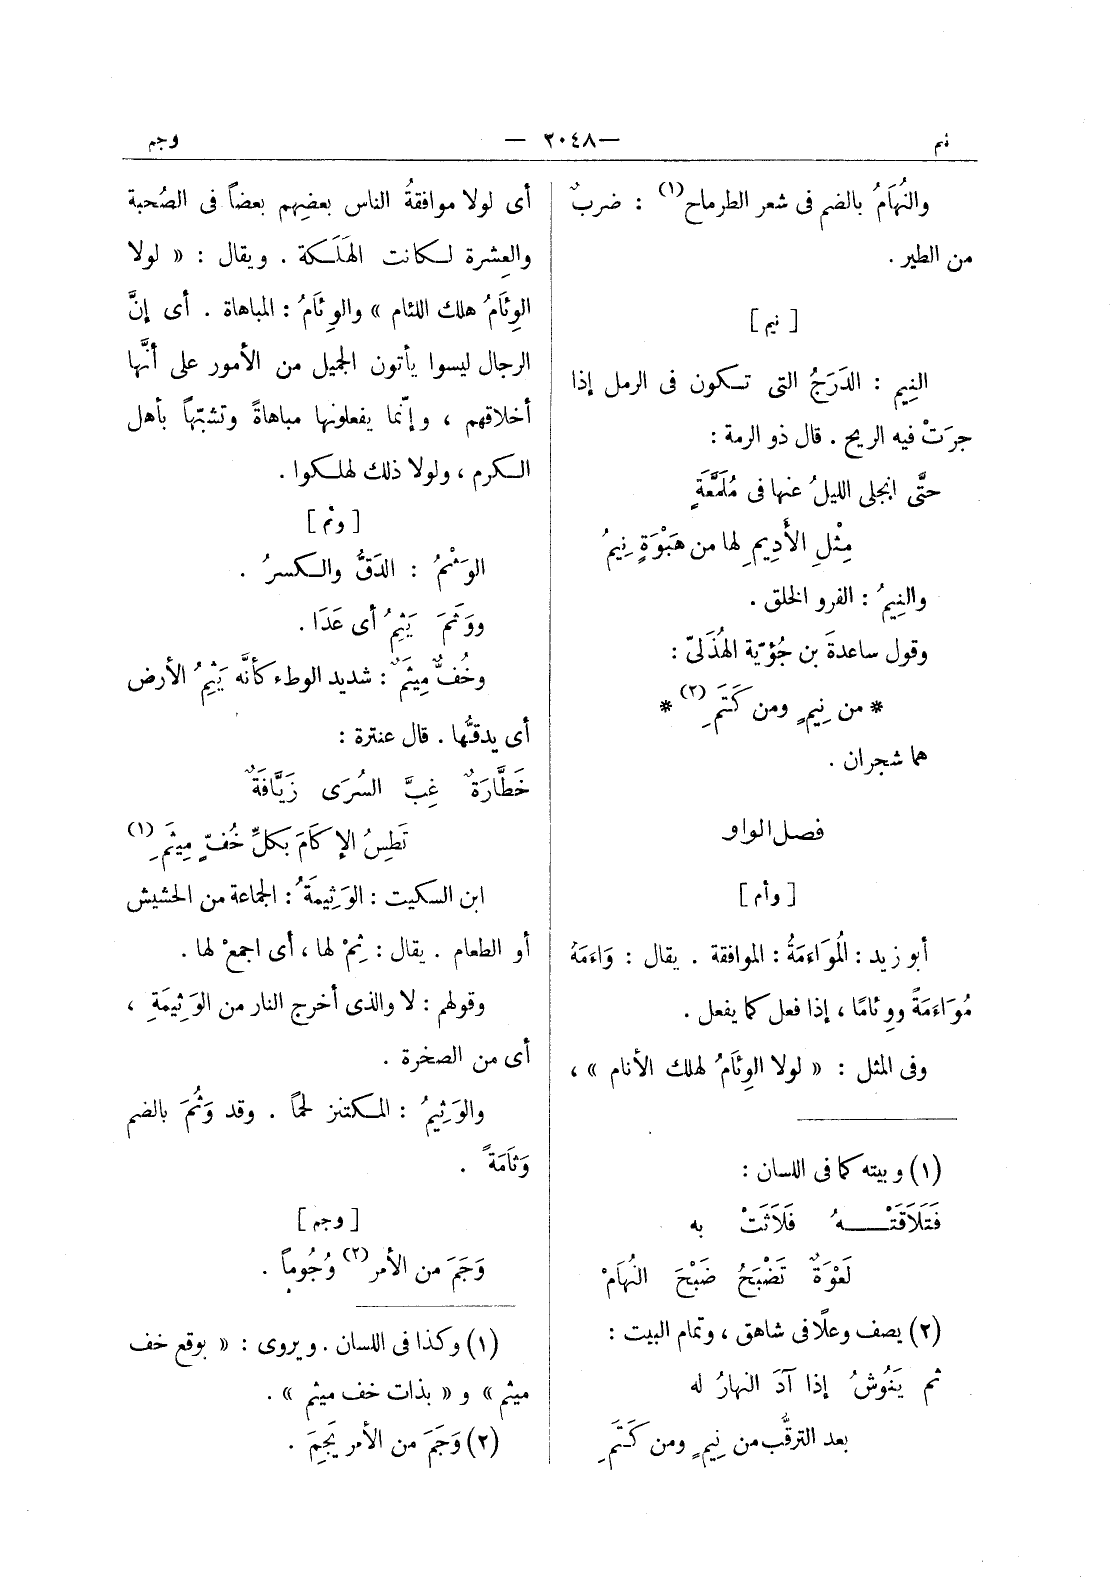 نم — ٢٠٤٨ — وجم
والنُهَامُ بالضم فى شعر الطرماح(١) : ضربٌ
من الطير .
[ نيم ]
النِيم : الدَرَجُ التى تكون فى الرمل إذا
جرَتْ فيه الريح . قال ذو الرمة :
حتَّى انجلى الليلُ عنها فى مُلَمَّعَةٍ
مِثْلِ الأَدِيمِ لها من هَبْوَةٍ نِيمُ
والنِيمُ : الفرو الخلق .
وقول ساعدةَ بن جُؤيّة الهُذَلىّ :
* من نِيمٍ ومن كَتَمِ(٢) *
هما شجران .
فصل الواو
[ وأم ]
أبو زيد : المُوَاءَمَةُ : الموافقة . يقال : وَاءَمَهُ
مُوَاءَمَةً ووِئامًا ، إذا فعل كما يفعل .
وفى المثل : « لولا الوِئَامُ لهلك الأنام » ،
(١) وبيته كما فى اللسان :
فَتَلَاقَتْـــهُ فَلَاثَتْ به
لَعْوَةٌ تَضْبَحُ ضَبْحَ النُهَامْ
(٢) يصف وعلًا فى شاهق ، وتمام البيت :
ثم يَنُوشُ إذا آدَ النهارُ له
بعد الترقُّب من نِيمٍ ومن كَتَمِ
أى لولا موافقةُ الناس بعضِهم بعضاً فى الصُحبة
والعِشرة لكانت الهَلَكة . ويقال : « لولا
الوِئَامُ هلك اللئام » والوِئَامُ : المباهاة . أى إنَّ
الرجال ليسوا يأتون الجميل من الأمور على أنَّها
أخلاقهم ، وإنّما يفعلونها مباهاةً وتشبّهاً بأهل
الكرم ، ولولا ذلك لهلكوا .
[ وثم ]
الوَثْمُ : الدَقُّ والكسرُ .
ووَثَمَ يَثِمُ أى عَدَا .
وخُفٌّ مِيثَمٌ : شديد الوطء كأنَّه يَثِمُ الأرض
أى يدقُّها . قال عنترة :
خَطَّارَةٌ غِبَّ السُرَى زَيَّافَةٌ
تَطِسُ الإكَامَ بكلِّ خُفٍّ مِيثَمِ(١)
ابن السكيت : الوَثِيمَةُ : الجماعة من الحشيش
أو الطعام . يقال : ثِمْ لها ، أى اجمعْ لها .
وقولهم : لا والذى أخرج النار من الوَثِيمَةِ ،
أى من الصخرة .
والوَثِيمُ : المكتنز لحماً . وقد وَثُمَ بالضم
وَثَامَةً .
[ وجم ]
وَجَمَ من الأمر(٢) وُجُوماً .
(١) وكذا فى اللسان . ويروى : « بوقع خف
ميثم » و « بذات خف ميثم » .
(٢) وَجَمَ من الأمر يَجِمَ .